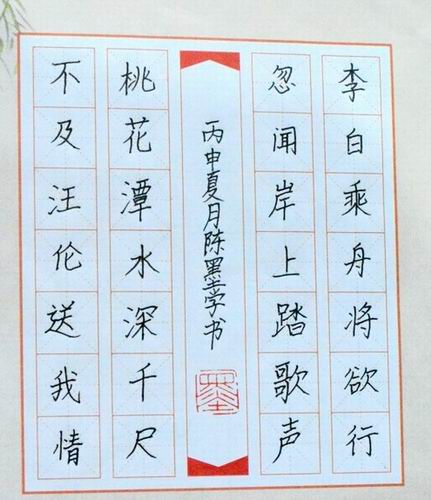 李白乘舟将欲行
忽闻岸上踏歌声
丙申夏月陈墨学书
桃花潭水深千尺
不及汪伦送我情